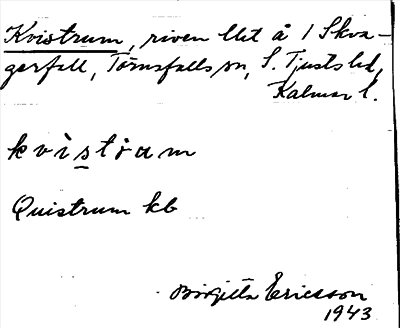 Kvistrum, riven lht å 1 Skva-
gerfall, Törnsfalls sn, S. Tjusts hd,
Kalmar l.
kvìstram
Quistrum kb
Birgitta Ericsson
1943